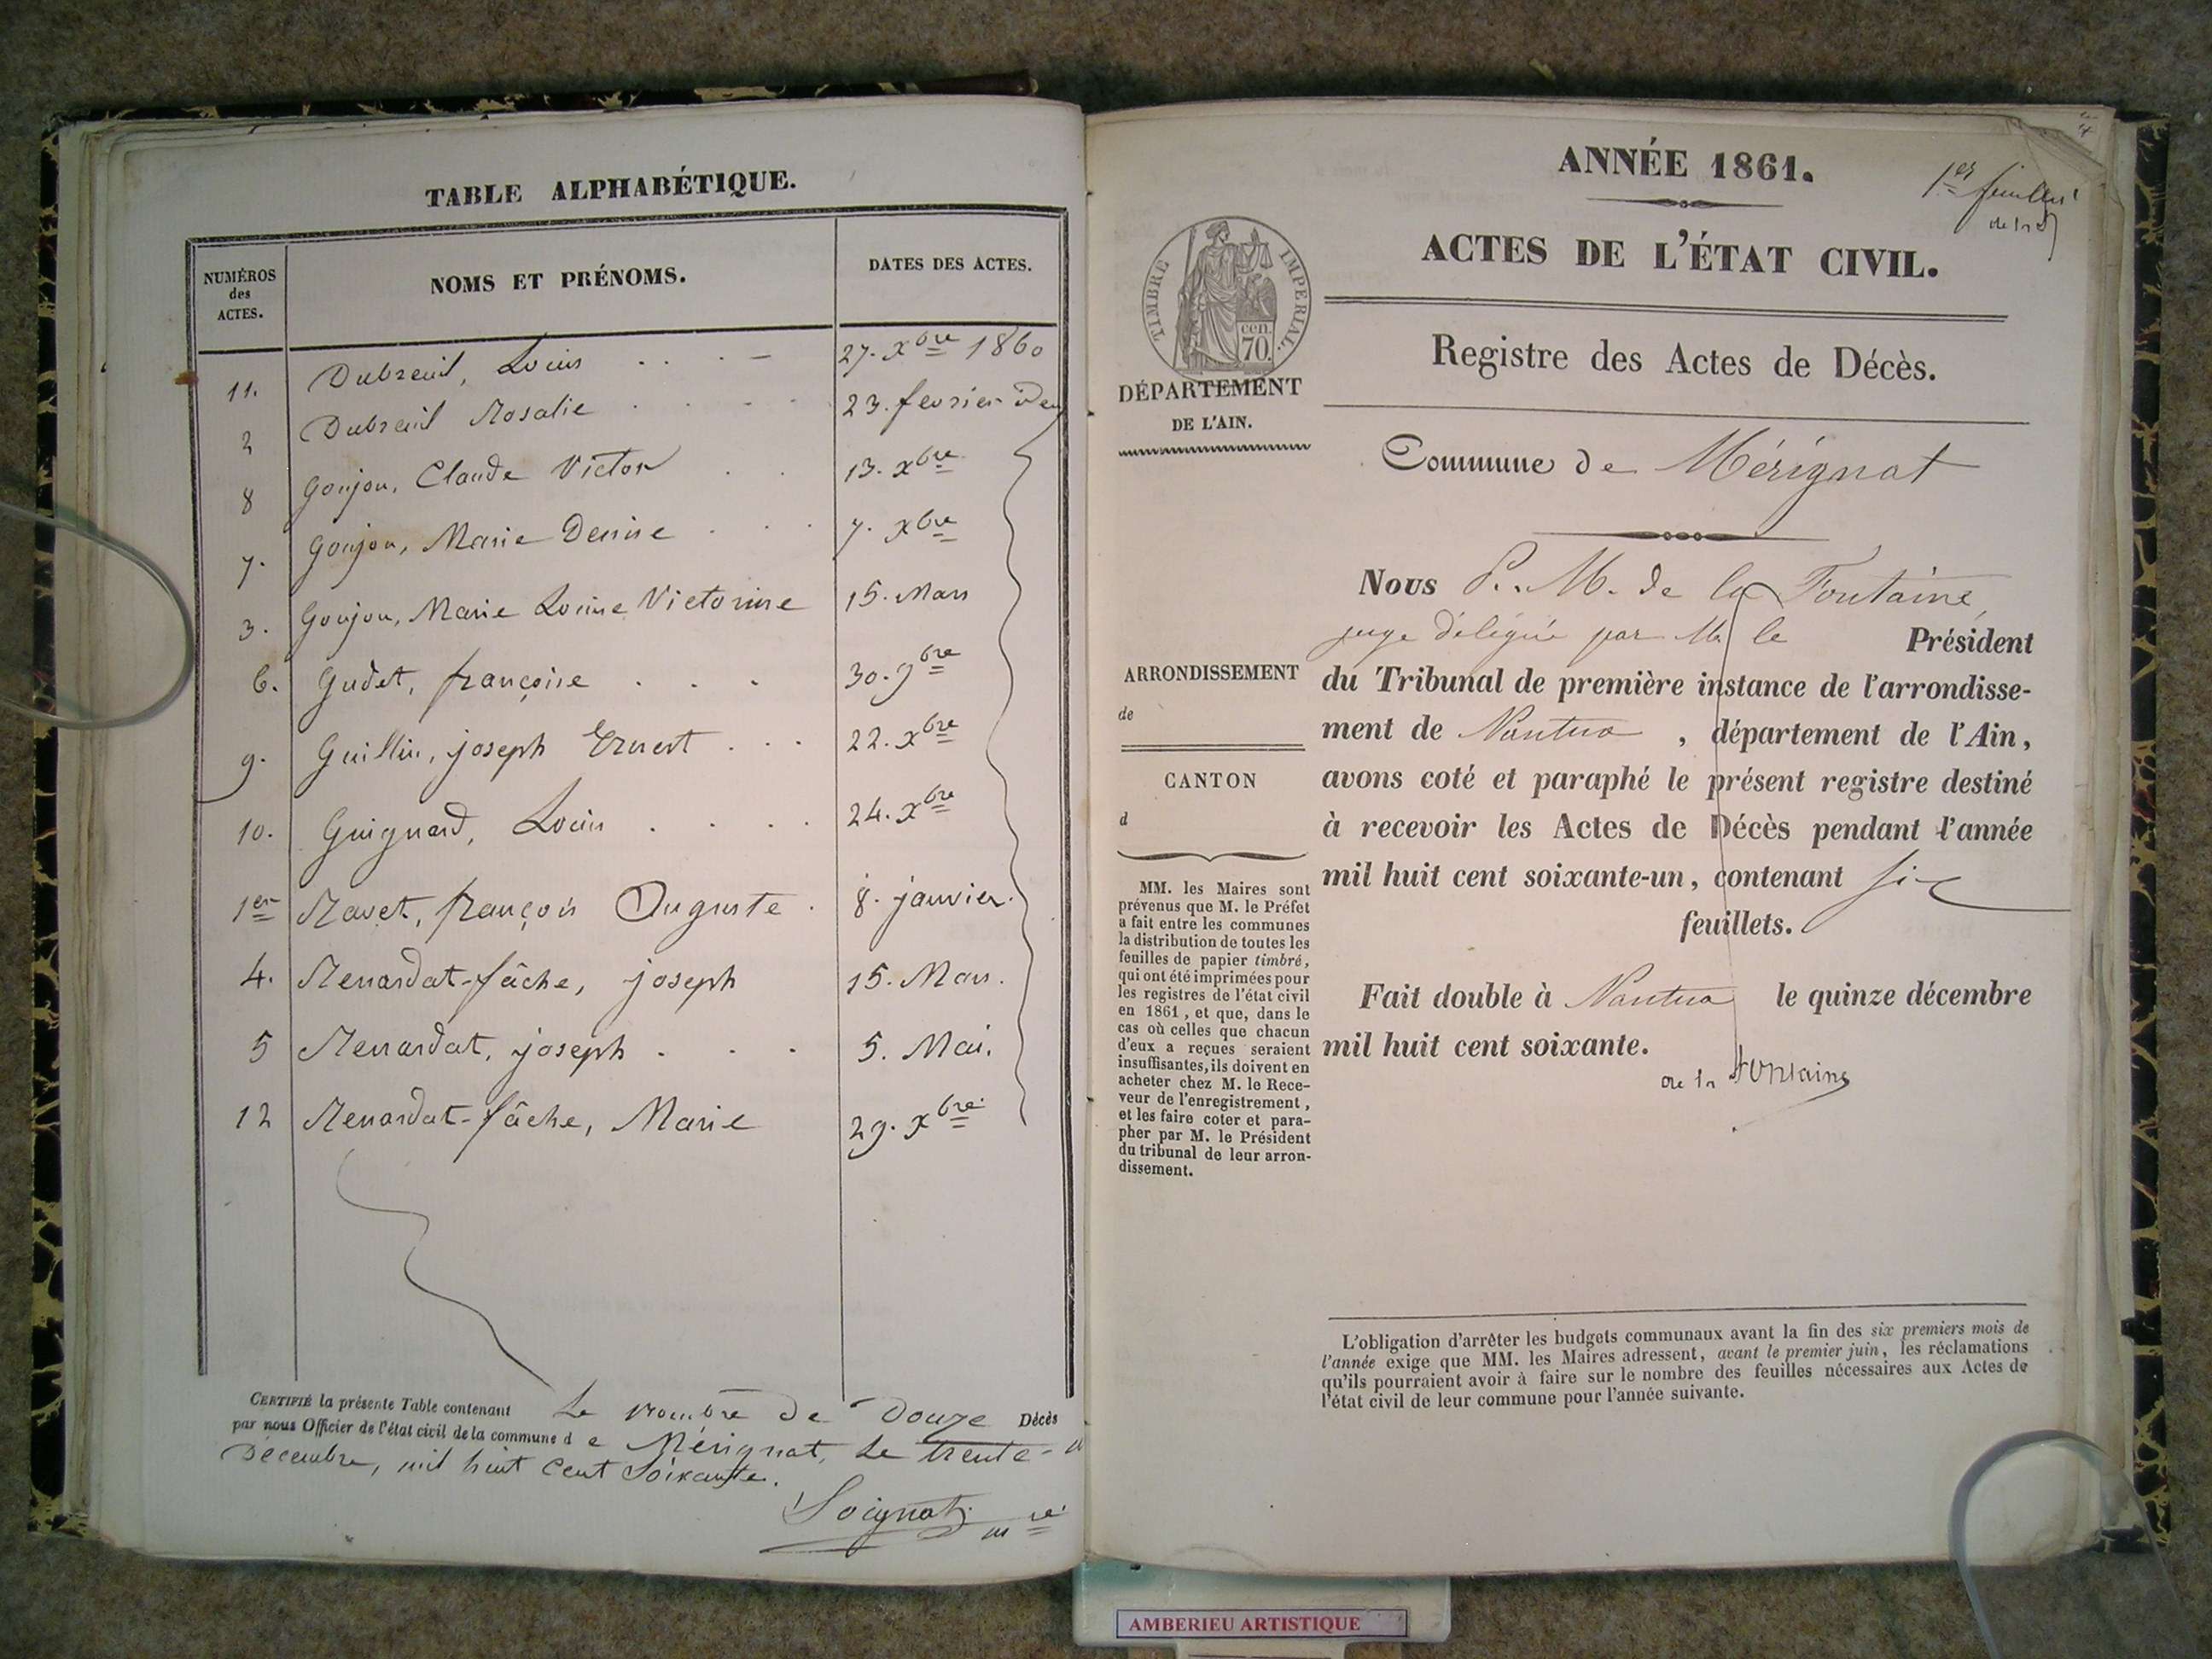 TABLE ALPHABÉTIQUE.
NUMÉROS
des
ACTES.
NOMS ET PRÉNOMS.
DATES DES ACTES.
11. Dubreuil, Louis . . . - 27. Xbre 1860
2 Dubreuil Rosalie . . . . 23. fevrier
8 Goujon, Claude Victor . . 13. Xbre
7. Goujon, Marie Denise . . . 7. Xbre
3. Goujon, Marie Louise Victorine 15. Mars
6. Gudet, françoise . . . 30. 9bre
9. Guillin, joseph Ernest . . . 22. Xbre
10. Guignard, Louis . . . . 24. Xbre
1er Ravet, françois Auguste . 8. janvier.
4. Renardat-fâche, joseph 15. Mars.
5 Renardat, joseph . . . 5. Mai.
12 Renardat-fâche, Marie 29. Xbre.
CERTIFIÉ la présente Table contenant Le nombre de Douze Décès
par nous Officier de l'état civil de la commune d e Mérignat, Le trente-
Décembre, mil huit Cent Soixante.
Soignat
mre
1er feuillet
de la
ANNÉE 1861.
ACTES DE L'ÉTAT CIVIL.
TIMBRE IMPERIAL.
cen.
70.
Registre des Actes de Décès.
DÉPARTEMENT
DE L'AIN.
Commune de Mérignat
Nous P. M. de la Fontaine,
juge délégué par M. le Président
ARRONDISSEMENT
de
du Tribunal de première instance de l'arrondisse-
ment de Nantua , département de l'Ain,
CANTON
d
avons coté et paraphé le présent registre destiné
à recevoir les Actes de Décès pendant l'année
mil huit cent soixante-un, contenant six
feuillets.
Fait double à Nantua le quinze décembre
mil huit cent soixante.
de la Fontaine
MM. les Maires sont
prévenus que M. le Préfet
a fait entre les communes
la distribution de toutes les
feuilles de papier timbré,
qui ont été imprimées pour
les registres de l'état civil
en 1861, et que, dans le
cas où celles que chacun
d'eux a reçues seraient
insuffisantes, ils doivent en
acheter chez M. le Rece-
veur de l'enregistrement,
et les faire coter et para-
pher par M. le Président
du tribunal de leur arron-
dissement.
L'obligation d'arrêter les budgets communaux avant la fin des six premiers mois de
l'année exige que MM. les Maires adressent, avant le premier juin, les réclamations
qu'ils pourraient avoir à faire sur le nombre des feuilles nécessaires aux Actes de
l'état civil de leur commune pour l'année suivante.
AMBERIEU ARTISTIQUE